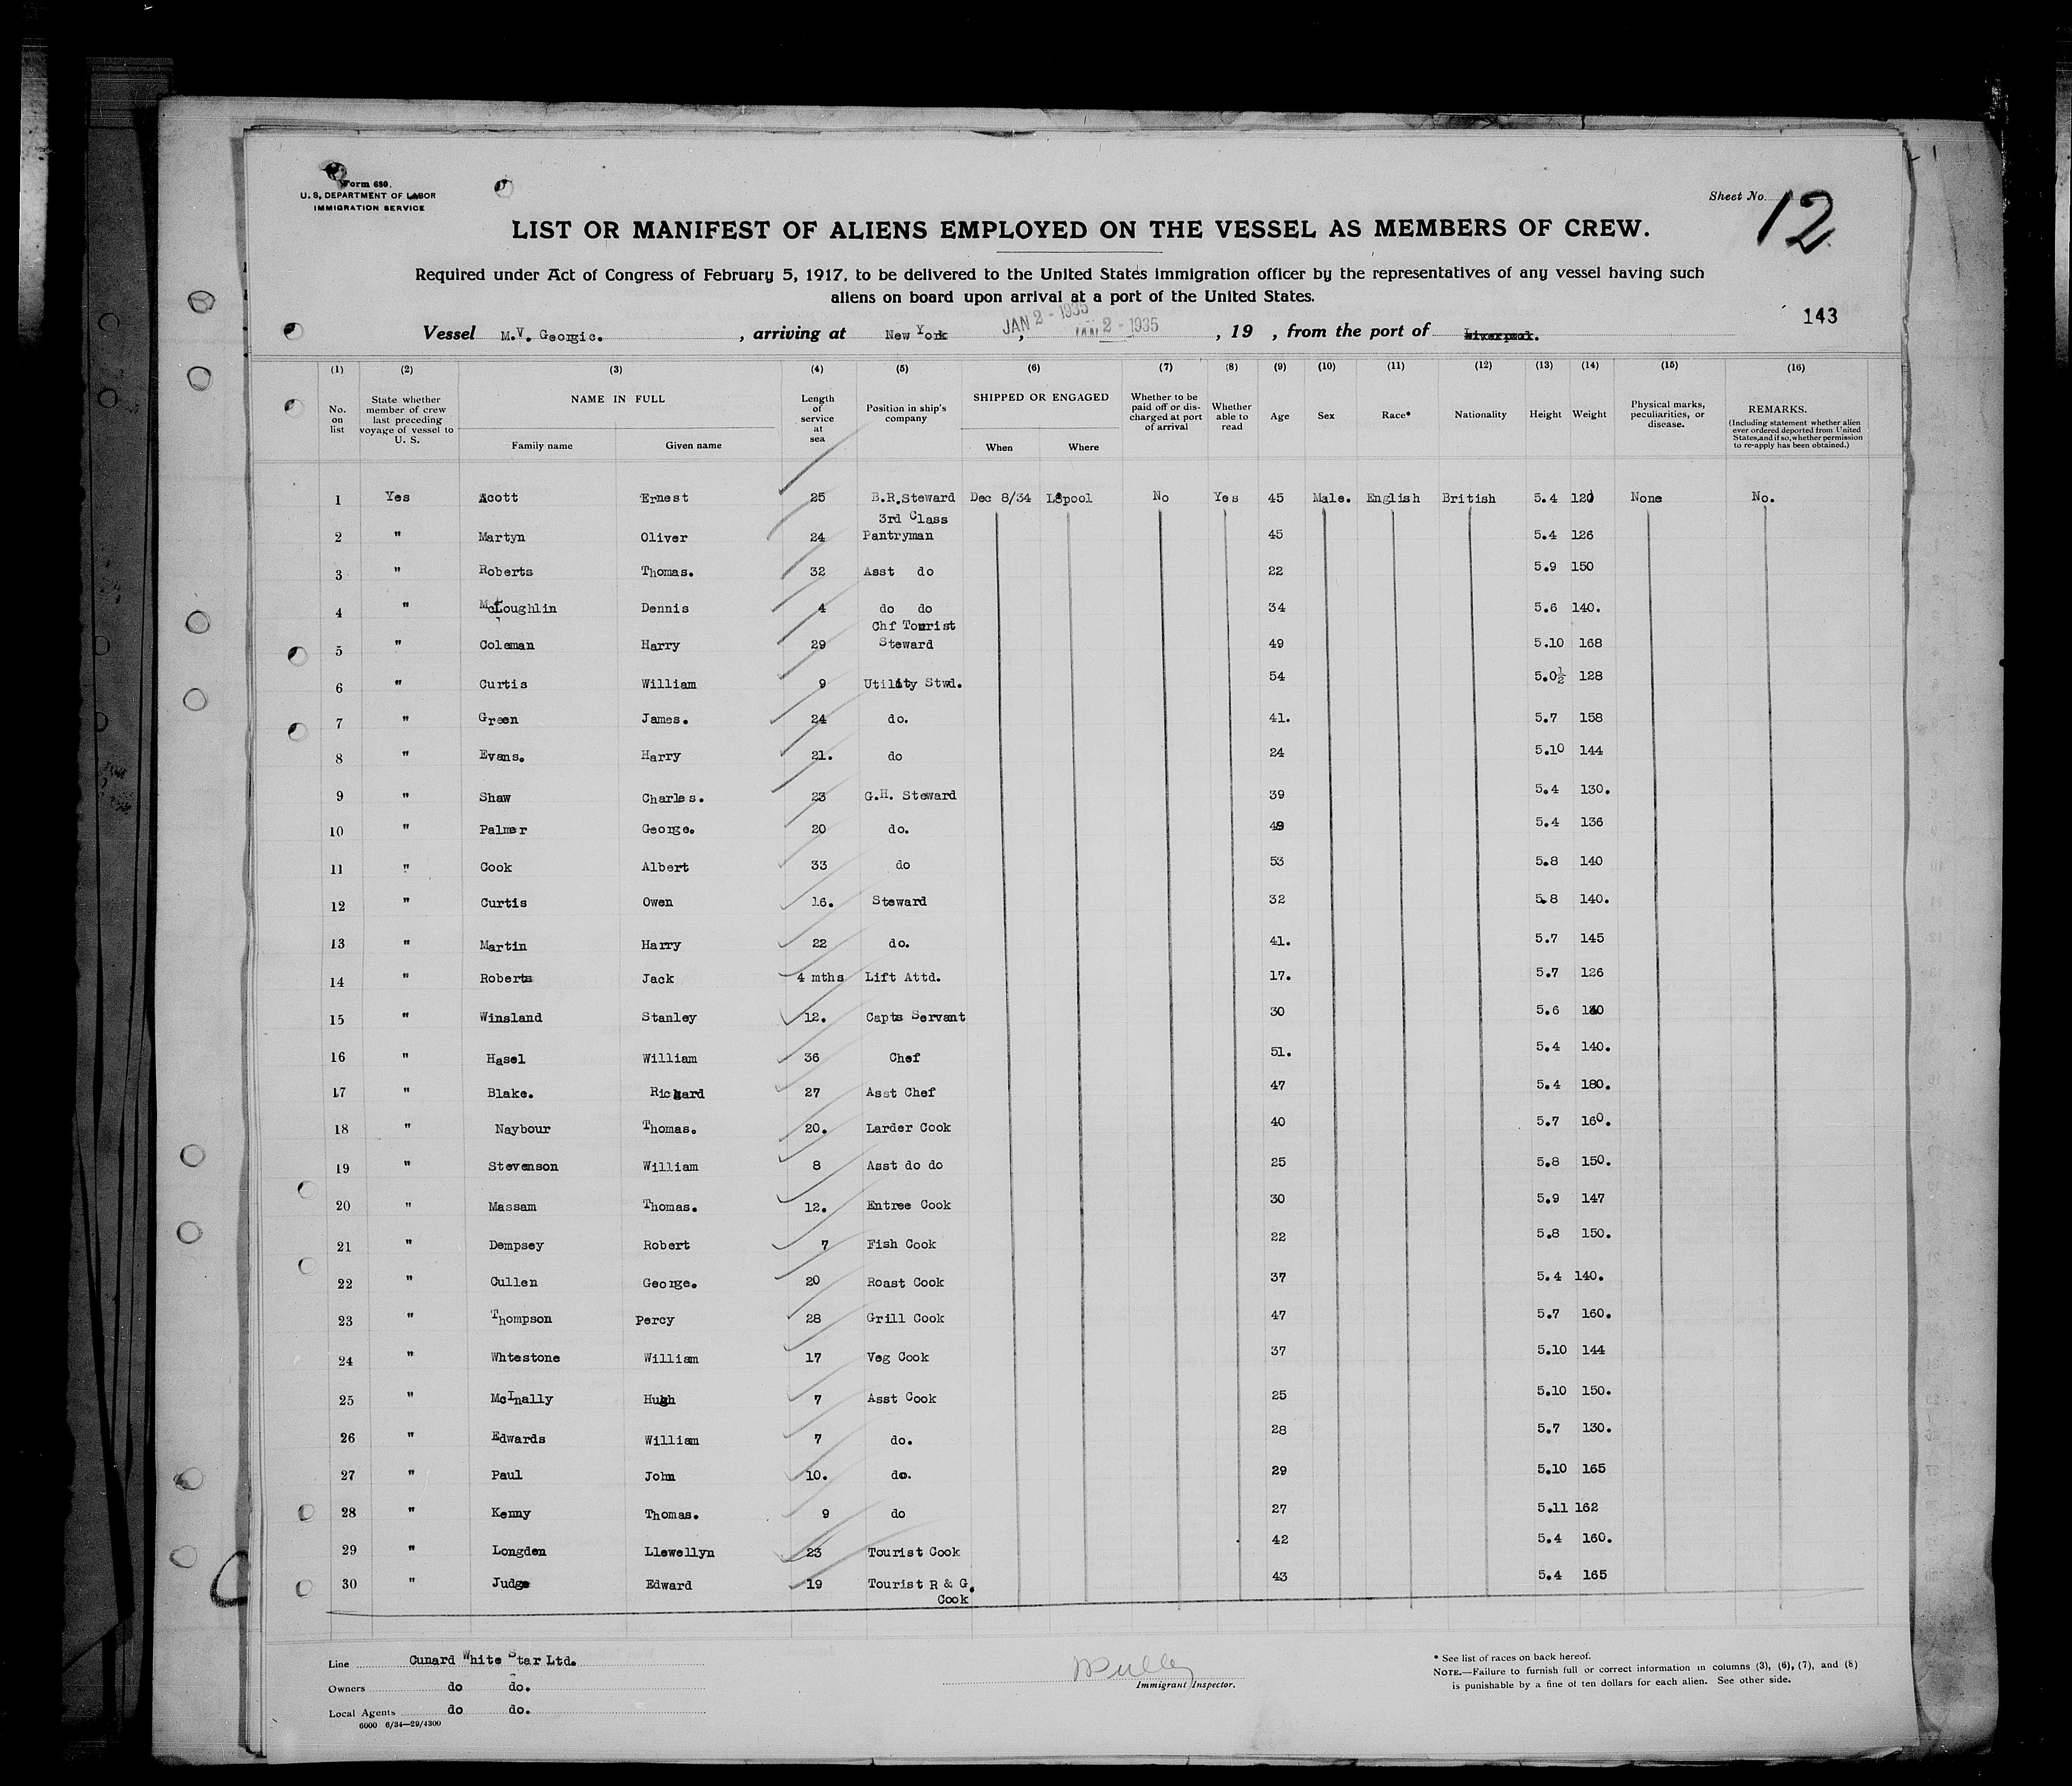 Form 680.
U. S. DEPARTMENT OF LABOR
IMMIGRATION SERVICE
Sheet No. 12
LIST OR MANIFEST OF ALIENS EMPLOYED ON THE VESSEL AS MEMBERS OF CREW.
Required under Act of Congress of February 5, 1917, to be delivered to the United States immigration officer by the representatives of any vessel having such
aliens on board upon arrival at a port of the United States.
143
JAN 2 - 1935
Vessel M.V. Georgic. , arriving at New York , JAN 2 - 1935 , 19 , from the port of Liverpool.
(1) (2) (3) (4) (5) (6) (7) (8) (9) (10) (11) (12) (13) (14) (15) (16)
No. on list State whether member of crew last preceding voyage of vessel to U. S. NAME IN FULL Family name Given name Length of service at sea Position in ship's company SHIPPED OR ENGAGED When Where Whether to be paid off or discharged at port of arrival Whether able to read Age Sex Race* Nationality Height Weight Physical marks, peculiarities, or disease. REMARKS. (Including statement whether alien ever ordered deported from United States, and if so, whether permission to re-apply has been obtained.)
1 Yes Acott Ernest 25 B.R.Steward Dec 8/34 L8pool No Yes 45 Male. English British 5.4 120 None No.
2 " Martyn Oliver 24 3rd Class Pantryman 45 5.4 126
3 " Roberts Thomas. 32 Asst do 22 5.9 150
4 " McLoughlin Dennis 4 do do 34 5.6 140.
5 " Coleman Harry 29 Chf Tourist Steward 49 5.10 168
6 " Curtis William 9 Utility Stwd. 54 5.0½ 128
7 " Green James. 24 do. 41. 5.7 158
8 " Evans. Harry 21. do 24 5.10 144
9 " Shaw Charles. 23 G.H. Steward 39 5.4 130.
10 " Palmer George. 20 do. 5.4 136
11 " Cook Albert 33 do 53 5.8 140
12 " Curtis Owen 16. Steward 32 5.8 140.
13 " Martin Harry 22 do. 41. 5.7 145
14 " Roberts Jack 4 mths Lift Attd. 17. 5.7 126
15 " Winsland Stanley 12. Capts Servant 30 5.6
16 " Hasel William 36 Chef 51. 5.4 140.
17 " Blake. Richard 27 Asst Chef 47 5.4 180.
18 " Naybour Thomas. 20. Larder Cook 40 5.7 160.
19 " Stevenson William 8 Asst do do 25 5.8 150.
20 " Massam Thomas. 12. Entree Cook 30 5.9 147
21 " Dempsey Robert 7 Fish Cook 22 5.8 150.
22 " Cullen George. 20 Roast Cook 37 5.4 140.
23 " Thompson Percy 28 Grill Cook 47 5.7 160.
24 " Whtestone William 17 Veg Cook 37 5.10 144
25 " McInally Hugh 7 Asst Cook 25 5.10 150.
26 " Edwards William 7 do. 28 5.7 130.
27 " Paul John 10. do. 29 5.10 165
28 " Kenny Thomas. 9 do 27 5.11 162
29 " Longden Llewellyn 23 Tourist Cook 42 5.4 160.
30 " Judge Edward 19 Tourist R & G. Cook 43 5.4 165
Line Cunard White Star Ltd.
Owners do do.
Local Agents do do.
6000 6/34—29/4300
Immigrant Inspector.
* See list of races on back hereof.
NOTE.—Failure to furnish full or correct information in columns (3), (6), (7), and (8)
is punishable by a fine of ten dollars for each alien. See other side.